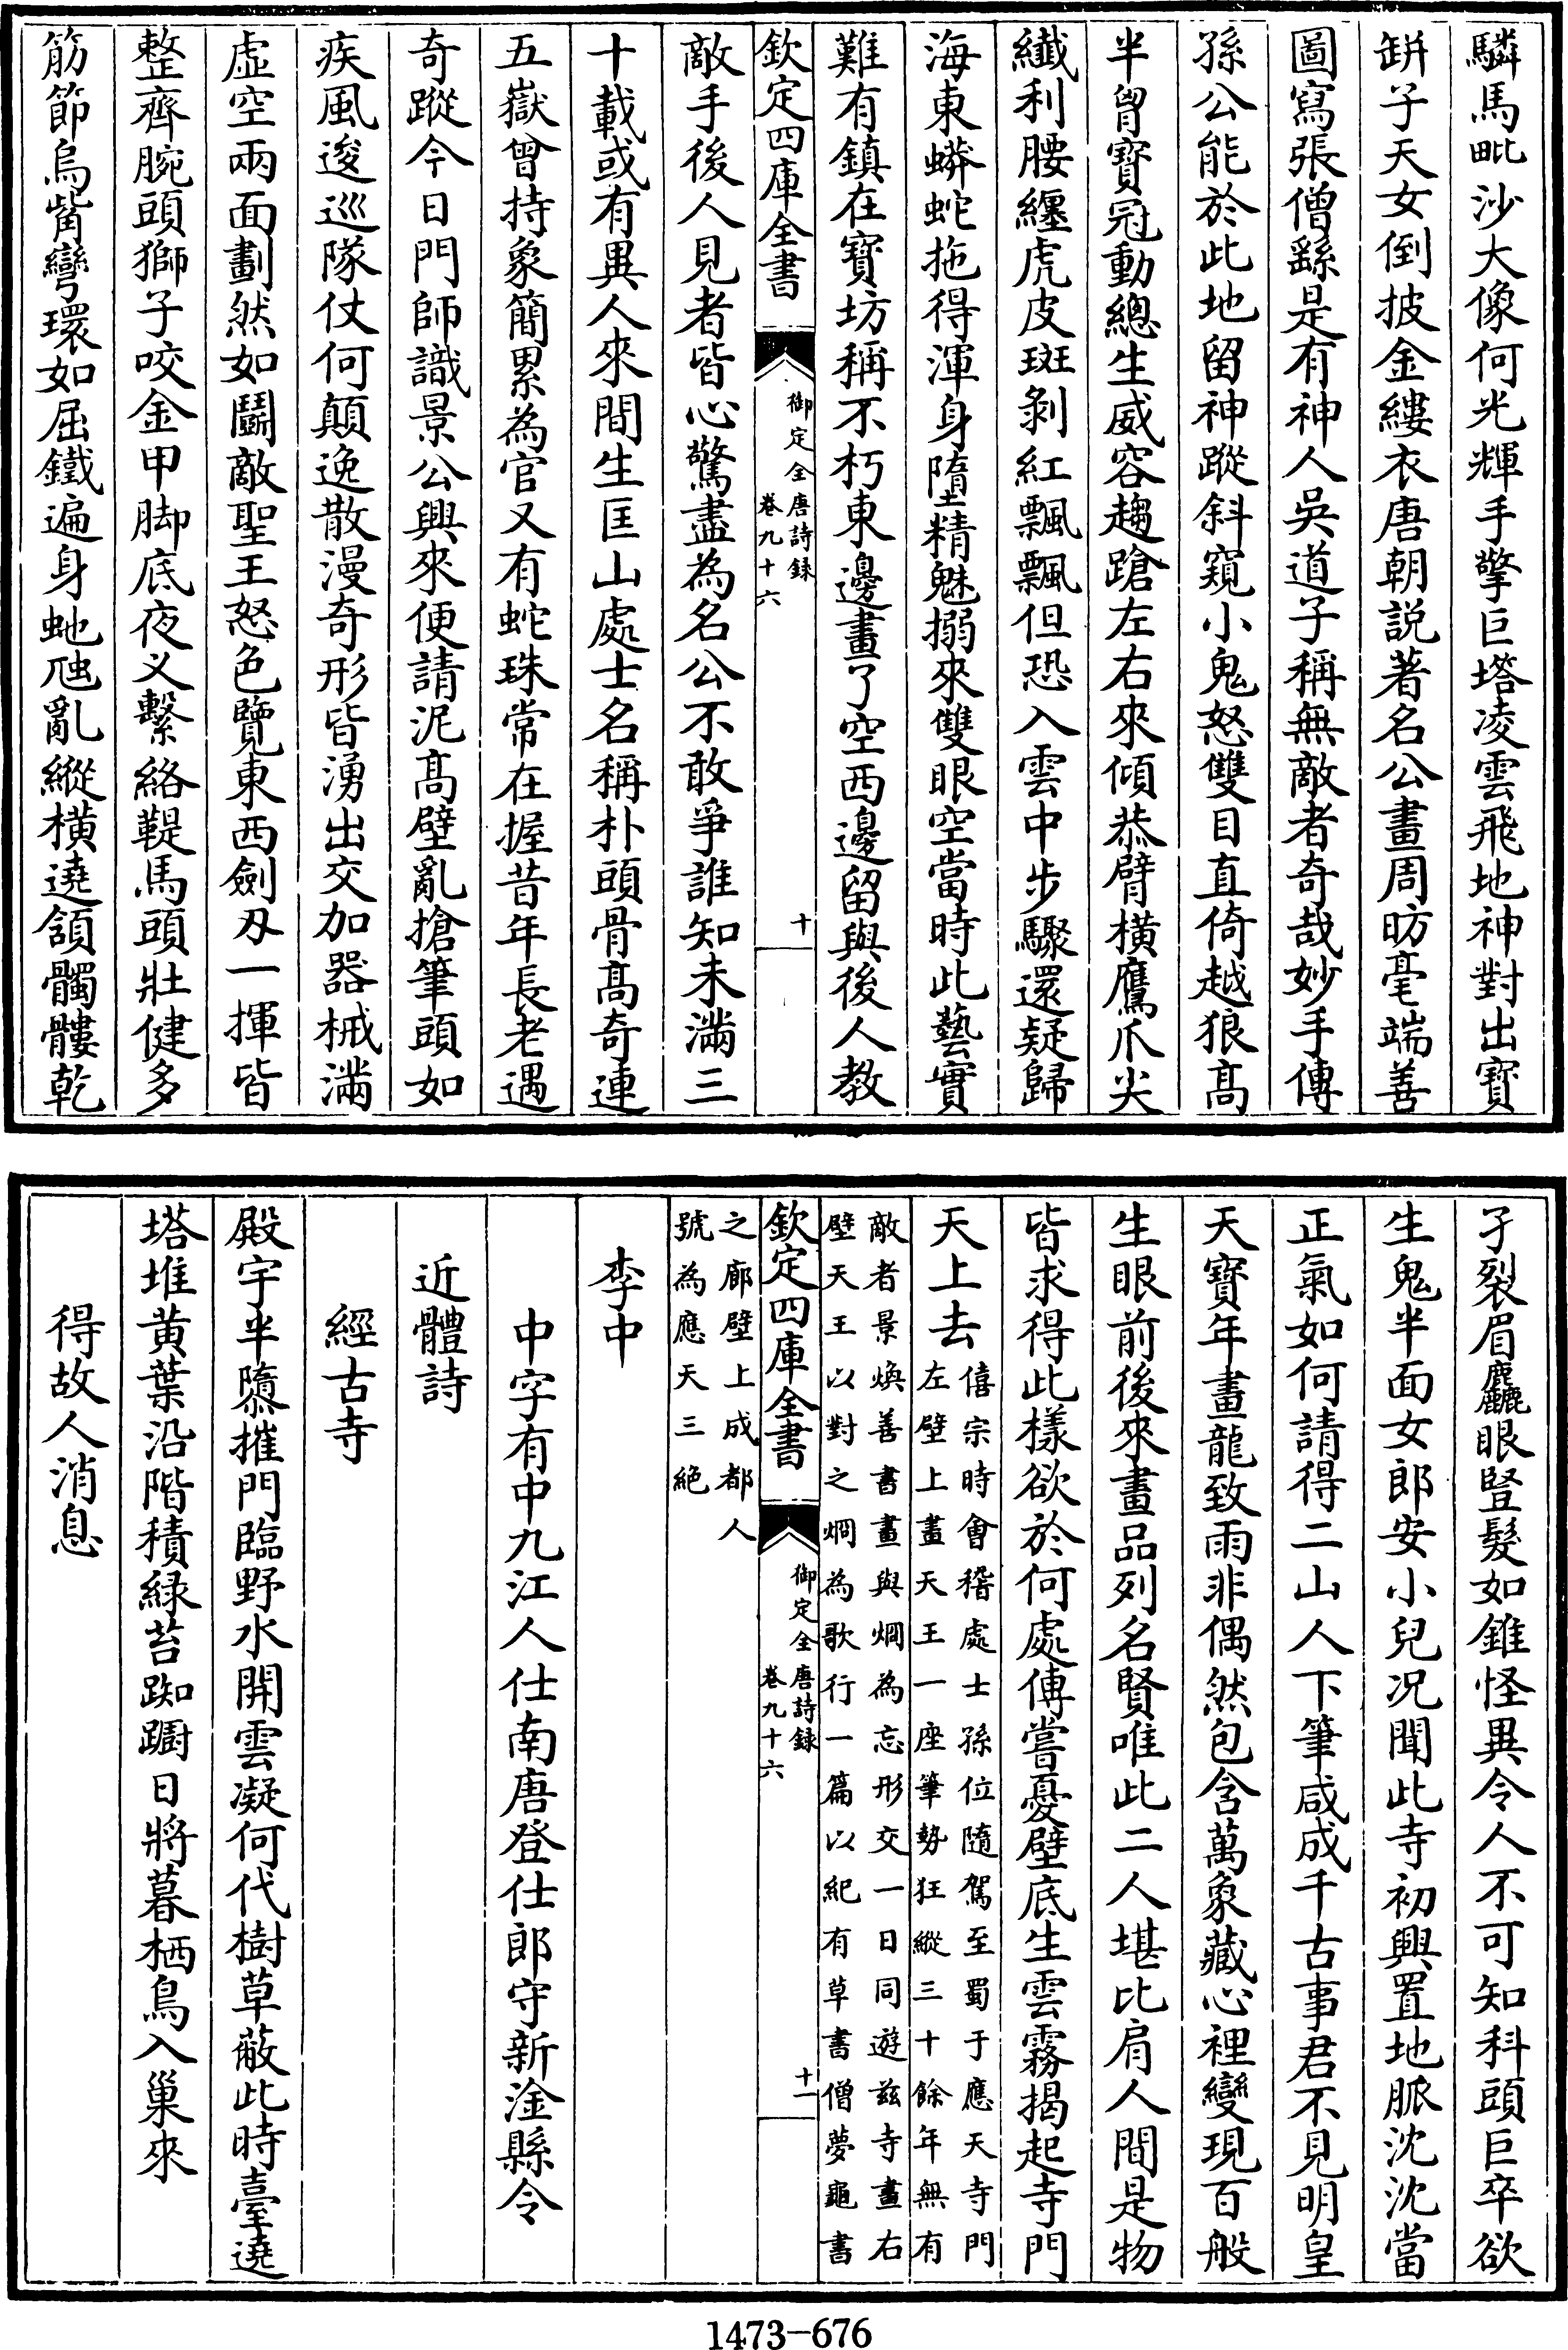 驎馬毗沙大像何光輝手擎巨塔凌雲飛地神對出寶
缾子天女倒披金縷衣唐朝説著名公畫周昉毫端善
圖寫張僧繇是有神人吳道子稱無敵者奇哉妙手傳
孫公能於此地留神蹤斜窺小鬼怒雙目直倚越狼高
半胷寶冠動總生威容趨蹌左右來傾恭臂橫鷹爪尖
纖利腰纒虎皮斑剝紅飄飄但恐入雲中步驟還疑歸
海東蟒蛇拖得渾身墮精魅搦來雙眼空當時此藝實
難有鎮在寶坊稱不朽東邊畫了空西邊留與後人教
欽定四庫全書
御定全唐詩録
卷九十六
十
敵手後人見者皆心驚盡為名公不敢爭誰知未滿三
十載或有異人來間生匡山處士名稱朴頭骨高奇連
五嶽曾持象簡累為官又有蛇珠常在握昔年長老遇
奇蹤今日門師識景公興來便請泥髙壁亂搶筆頭如
疾風逡巡隊仗何顛逸散漫奇形皆湧出交加器械滿
虛空兩面劃然如鬭敵聖王怒色覽東西劍刃一揮皆
整齊腕頭獅子咬金甲脚底夜义繫絡鞮馬頭壯健多
筋節烏觜彎環如屈鐵遍身虵虺亂縱横遶頷髑髏乾
孑裂眉麤眼豎髮如錐怪異令人不可知科頭巨卒欲
生鬼半面女郎安小兒况聞此寺初興置地脈沈沈當
正氣如何請得二山人下筆咸成千古事君不見明皇
天寶年畫龍致雨非偶然包含萬象藏心裡變現百般
生眼前後來畫品列名賢唯此二人堪比肩人間是物
皆求得此樣欲於何處傳嘗憂壁底生雲霧揭起寺門
天上去
僖宗時會稽處士孫位隨駕至蜀于應天寺門
左壁上畫天王一座筆勢狂縱三十餘年無有
敵者景煥善書畫與烱為忘形交一日同遊兹寺畫右
壁天王以對之烱為歌行一篇以紀有草書僧夢龜書
欽定四庫全書
御定全唐詩録
卷九十六
十一
之廊壁上成都人
號為應天三絶
李中
中字有中九江人仕南唐登仕郎守新淦縣令
近體詩
經古寺
殿宇半隳摧門臨野水開雲凝何代樹草蔽此時臺遶
塔堆黄葉沿階積緑苔踟蹰日將暮栖鳥入巢來
得故人消息
1473-676